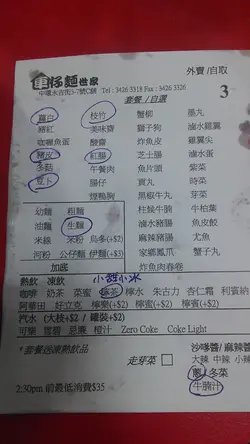 外賣/自取
車仔麵世家
中環永吉街3-7號C舖 Tel : 3426 3318 Fax : 3426 3326
套餐 / 自選
3
蘿白 枝竹 蟹柳 墨丸
豬紅 美味齋 獅子狗 滷水雞翼
咖喱魚蛋 醮齋 炸魚皮 雞翼尖
豬皮 紅腸 芝士腸 滷水蛋
冬菇 午餐肉 魚片頭 紫菜
豆卜 腸仔 貢丸 時菜
煙鴨胸 黑椒牛丸 芽菜
幼麵 粗麵 柱候牛腩 牛柏葉
油麵 生麵 滷水豬腩 魚皮餃
米線 米粉 烏冬(+$2) 麻辣豬腸 尤魚
河粉 公仔麵 伊麵(+$3) 家鄉鳳爪 蟹子丸
加底 炸魚肉春卷
熱飲 凍飲 小甜小冰
咖啡 奶茶 菜蜜 檸茶 檸水 朱古力 杏仁霜 利賓納
阿華田 好立克 檸樂(+$2) 檸蜜(+$2) 檸賓(+$2)
汽水 (大枝+$2 / 罐裝+$2)
可樂 雪碧 忌廉 橙汁 Zero Coke Coke Light
*套餐送凍熱飲品
走芽菜
沙嗲醬/
大辣 中辣 小辣
蔥/冬菜
牛腩汁
2:30pm 前最低消費$35